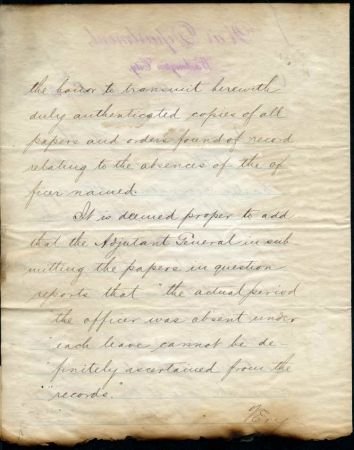 War Department
Washington City
the honor to transmit herewith
duly authenticated copies of all
papers and orders found of record
relating to the absences of the of
ficer named.
It is deemed proper to add
that the Adjutant General in sub
mitting the papers in question
reports that "the actual period
"the officer was absent under
"each leave cannot be de-
"finitely ascertained from the
"records."
Very